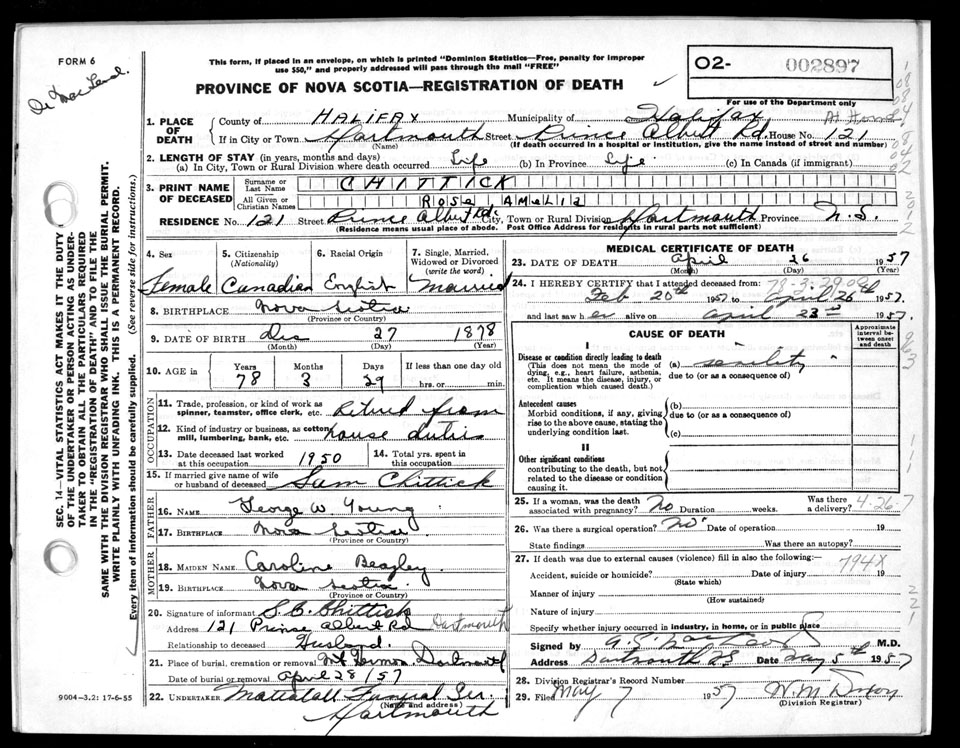 FORM 6
Dr Mac Leod.
This form, if placed in an envelope, on which is printed "Dominion Statistics—Free, penalty for improper
use $50," and properly addressed will pass through the mail "FREE"
PROVINCE OF NOVA SCOTIA—REGISTRATION OF DEATH
O2- 002897
For use of the Department only
SEC. 14—VITAL STATISTICS ACT MAKES IT THE DUTY
OF THE UNDERTAKER OR PERSON ACTING AS UNDER-
TAKER TO OBTAIN ALL THE PARTICULARS REQUIRED
IN THE "REGISTRATION OF DEATH" AND TO FILE THE
SAME WITH THE DIVISION REGISTRAR WHO SHALL ISSUE THE BURIAL PERMIT.
WRITE PLAINLY WITH UNFADING INK. THIS IS A PERMANENT RECORD.
Every item of information should be carefully supplied. (See reverse side for instructions.)
1. PLACE OF DEATH
County of HALIFAX Municipality of Halifax At Home
If in City or Town Dartmouth Street Prince Albert Rd. House No. 121
(Name) (If death occurred in a hospital or institution, give the name instead of street and number)
2. LENGTH OF STAY (in years, months and days)
(a) In City, Town or Rural Division where death occurred Life (b) In Province Life (c) In Canada (if immigrant)
3. PRINT NAME OF DECEASED
Surname or Last Name CHITTICK
All Given or Christian Names ROSE AMELIA
RESIDENCE No. 121 Street Prince Albert Rd. City, Town or Rural Division Dartmouth Province N.S.
(Residence means usual place of abode. Post Office Address for residents in rural parts not sufficient)
4. Sex 5. Citizenship (Nationality) 6. Racial Origin 7. Single, Married, Widowed or Divorced (write the word)
Female Canadian English Married
8. BIRTHPLACE Nova Scotia
(Province or Country)
9. DATE OF BIRTH Dec 27 1878
(Month) (Day) (Year)
10. AGE in Years Months Days If less than one day old
78 3 29 hrs. or min.
OCCUPATION
11. Trade, profession, or kind of work as
spinner, teamster, office clerk, etc. Retired from
12. Kind of industry or business, as cotton
mill, lumbering, bank, etc. house duties
13. Date deceased last worked at this occupation 1950 14. Total yrs. spent in this occupation
15. If married give name of wife
or husband of deceased Sam Chittick
FATHER
16. NAME George W. Young
17. BIRTHPLACE Nova Scotia
(Province or Country)
MOTHER
18. MAIDEN NAME Caroline Beazley
19. BIRTHPLACE Nova Scotia
(Province or Country)
20. Signature of informant S.C. Chittick
Address 121 Prince Albert Rd Dartmouth
Relationship to deceased Husband.
21. Place of burial, cremation or removal Mt Hermon Dartmouth
Date of burial or removal April 28/57
22. UNDERTAKER Mattatall Funeral Ser.
(Name and address)
Dartmouth
9004-3.2: 17-6-55
MEDICAL CERTIFICATE OF DEATH
23. DATE OF DEATH April 26 1957
(Month) (Day) (Year)
24. I HEREBY CERTIFY that I attended deceased from:
Feb 20th 1957 to April 26th 1957.
and last saw her alive on April 23rd 1957.
CAUSE OF DEATH
Approximate interval between onset and death
I
Disease or condition directly leading to death
(This does not mean the mode of
dying, e.g., heart failure, asthenia,
etc. It means the disease, injury, or
complication which caused death.)
(a) senility
due to (or as a consequence of)
Antecedent causes
Morbid conditions, if any, giving
rise to the above cause, stating the
underlying condition last.
(b)
due to (or as a consequence of)
(c)
II
Other significant conditions
contributing to the death, but not
related to the disease or condition
causing it.
25. If a woman, was the death associated with pregnancy? No Duration weeks. Was there a delivery? 4-26-7
26. Was there a surgical operation? No Date of operation 19
State findings Was there an autopsy?
27. If death was due to external causes (violence) fill in also the following:— 794X
Accident, suicide or homicide? Date of injury 19
(State which)
Manner of injury
(How sustained)
Nature of injury
Specify whether injury occurred in industry, in home, or in public place
Signed by M.D.
Address Dartmouth NS Date May 5th 1957
28. Division Registrar's Record Number
29. Filed May 7 1957 W.M. Dixon
(Division Registrar)